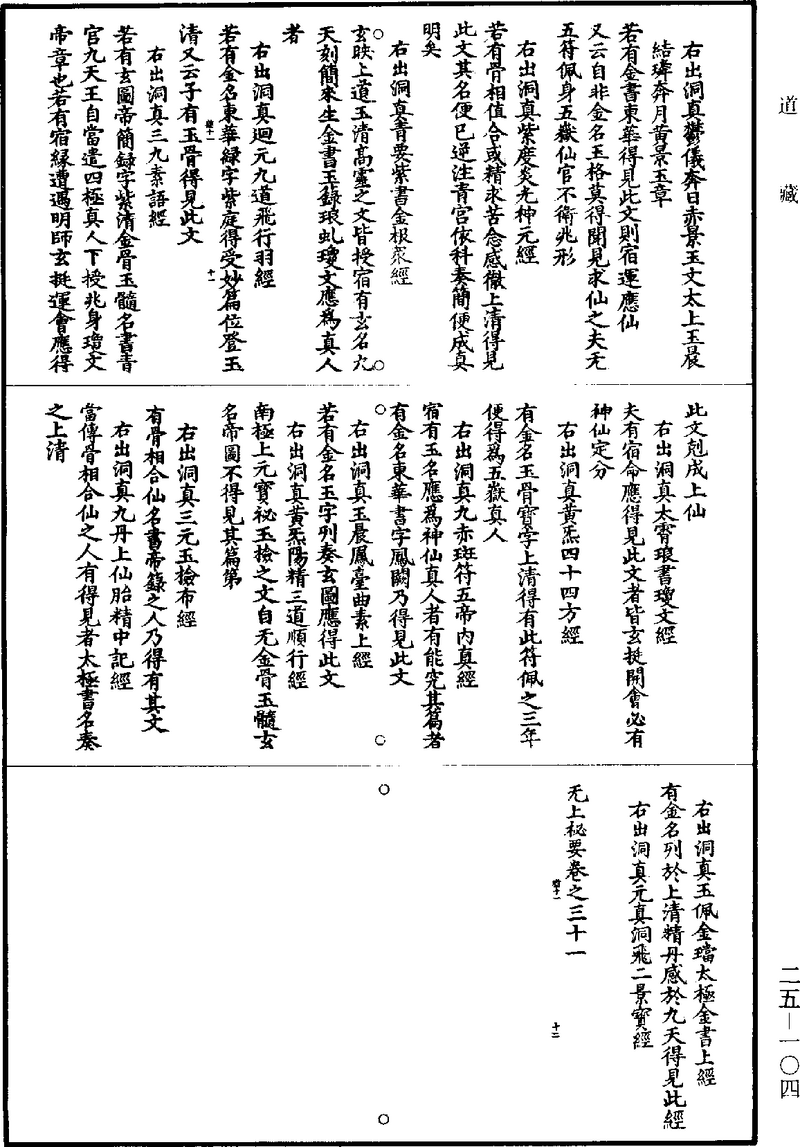 道藏
右出洞真鬱儀奔日赤景玉文太上玉晨
結璘奔月黄景玉章
若有金書東華得見此文則宿運應仙
又云自非金名玉格莫得聞見求仙之夫无
五符佩身五嶽仙官不衛兆形
右出洞真紫度炎光神元經
若有骨相值合或精求苦念感徹上清得見
此文其名便已逆注青宮依科奏簡便成真
明矣
右出洞真青要紫書金根衆經
玄映上道玉清高靈之文皆授宿有玄名九
天刻簡來生金書玉籙琅虬瓊文應為真人
者
右出洞真迴元九道飛行羽經
若有金名東華緑字紫庭得受妙篇位登玉
清又云子有玉骨得見此文
十一
右出洞真三九素語經
若有玄圖帝簡録字紫清金骨玉髓名書青
官九天王自當遣四極真人下授兆身瓊文
帝章也若有宿緣遭遇明師玄挺運會應得
此文剋成上仙
右出洞真太霄琅書瓊文經
夫有宿命應得見此文者皆玄挺開會必有
神仙定分
右出洞真黄炁四十四方經
有金名玉骨寶字上清得有此符佩之三年
便得爲五嶽真人
右出洞真九赤班符五帝內真經
宿有玉名應爲神仙真人者有能究其篇者
有金名東華書字鳳闕乃得見此文
右出洞真玉晨鳳臺曲素上經
若有金名玉字列奏玄圖應得此文
右出洞真黄炁陽精三道順行經
南極上元寶祕玉撿之文自无金骨玉髓玄
名帝圖不得見其篇第
右出洞真三元玉撿布經
有骨相合仙名書帝籙之人乃得有其文
右出洞真九丹上仙胎精中記經
當傳骨相合仙之人有得見者太極書名奏
之上清
右出洞真玉佩金璫太極金書上經
有金名列於上清精丹感於九天得見此經
右出洞真元真洞飛二景寶經
无上秘要卷之三十一
十二
二五－一〇四